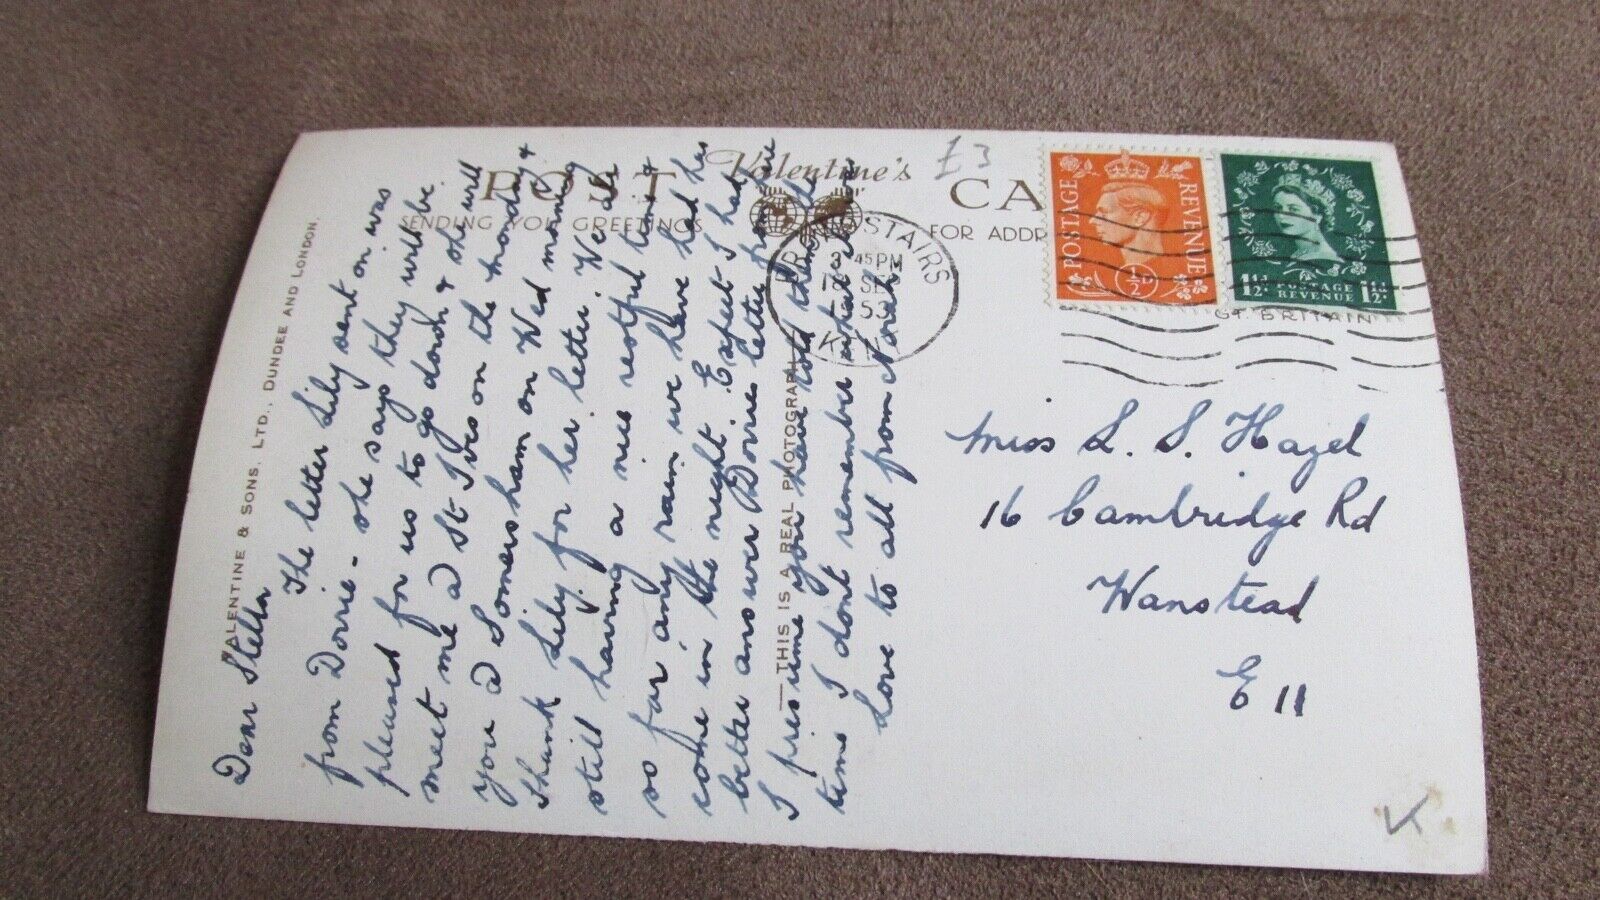 POST CA
Valentine's
SENDING YOU GREETINGS
FOR ADDR
£3
VALENTINE & SONS. LTD., DUNDEE AND LONDON.
THIS IS A REAL PHOTOGRAPH
BROADSTAIRS
3 45 PM
SEP
53
KENT
POSTAGE REVENUE
½D
1½D. POSTAGE REVENUE 1½D.
GT. BRITAIN
Dear Stella
The letter Lily sent on was
from Dorrie - she says they will be
pleased for us to go down & she will
meet me a St Ives on the Monday &
you a Somersham on Wed morning
Thank Lily for her letter. We are
still having a nice restful time &
so far any rain we have had has
come in the night. Expect I had
better answer Dorries letter
I presume you have told them the
time I dont remember what it
Love to all from Norah
Miss L. S. Hazel
16 Cambridge Rd
Wanstead
E 11